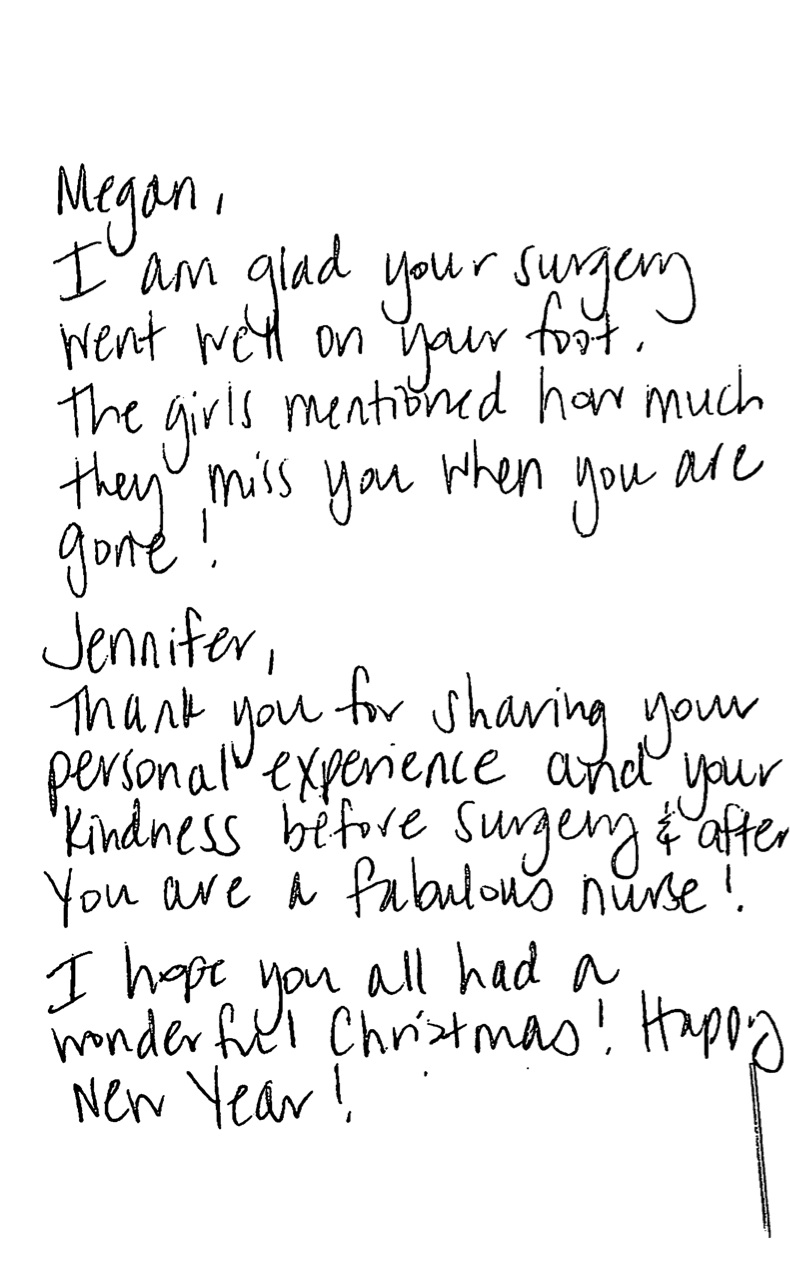 Megan,
I am glad your surgery
went well on your foot.
The girls mentioned how much
they miss you when you are
gone!
Jennifer,
Thank you for sharing your
personal experience and your
kindness before surgery & after
You are a fabulous nurse!
I hope you all had a
wonderful Christmas! Happy
New Year!